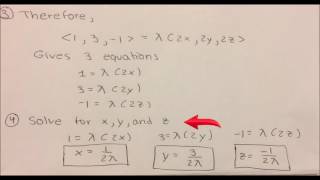 ③ Therefore,
<1, 3, -1> = λ<2x, 2y, 2z>
Gives 3 equations
1 = λ(2x)
3 = λ(2y)
-1 = λ(2z)
④ Solve for x, y, and z
1 = λ(2x) 3 = λ(2y) -1 = λ(2z)
x = 1/2λ y = 3/2λ z = -1/2λ